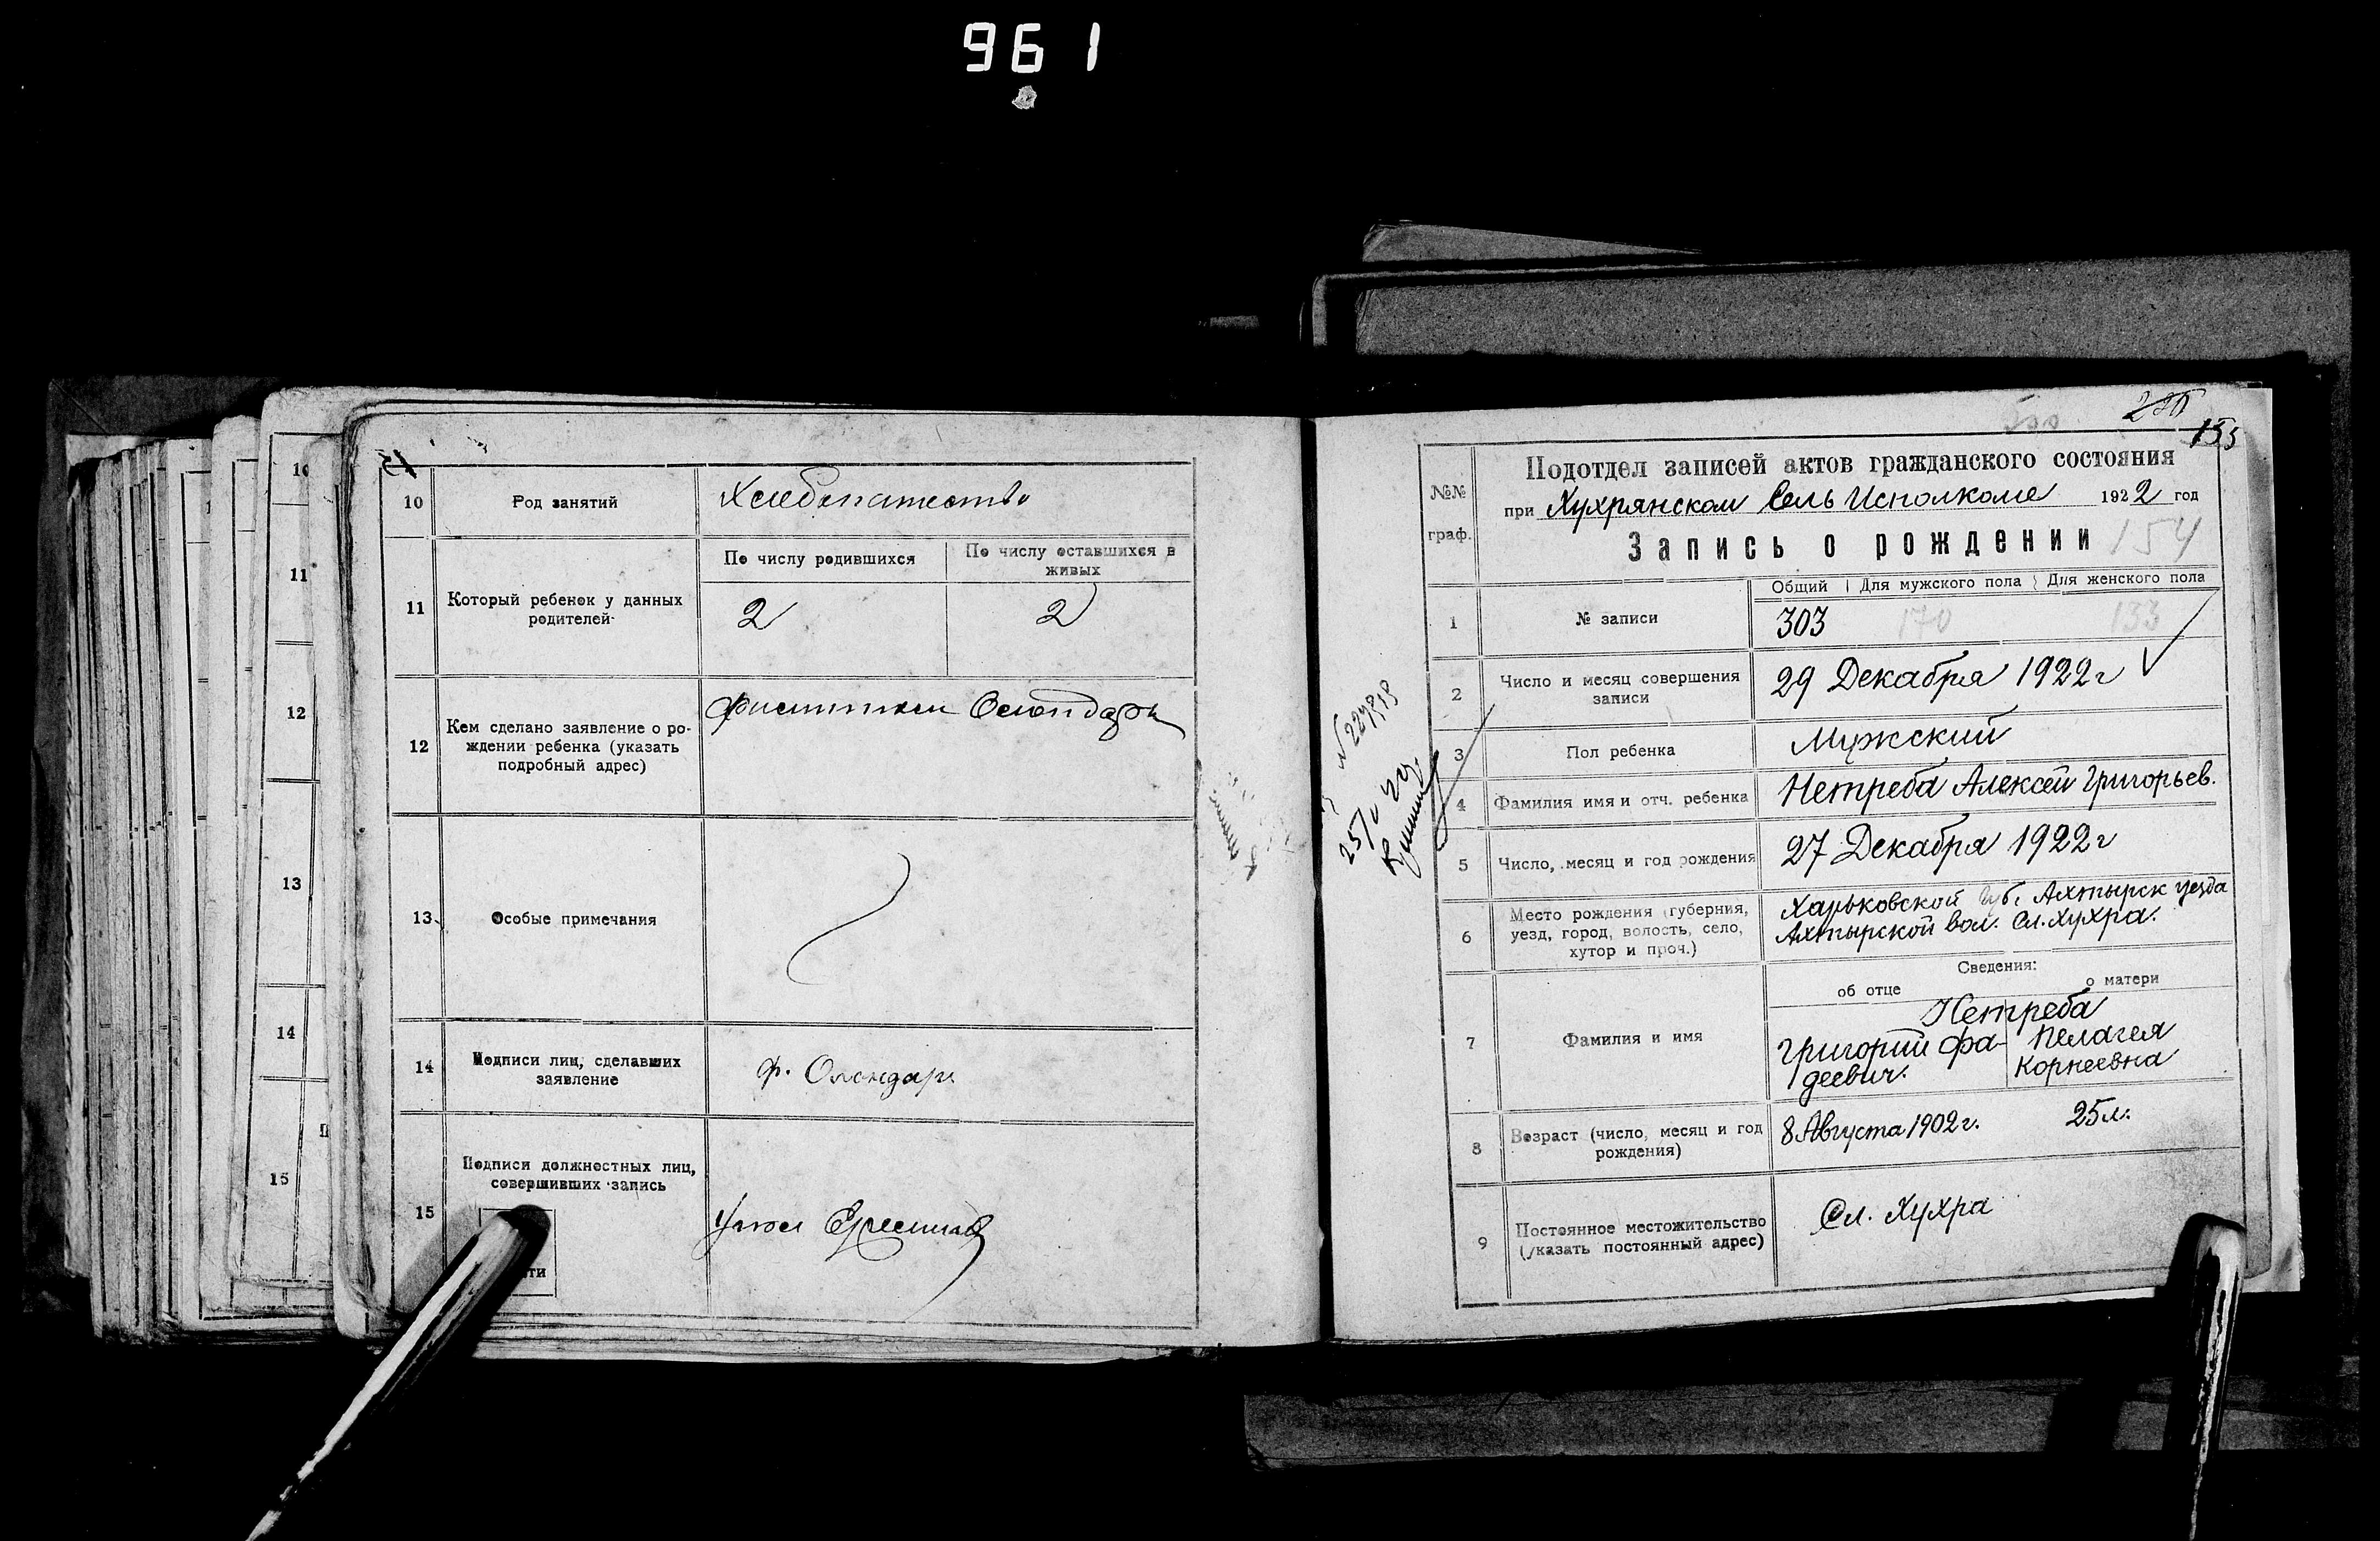 961
10
11
12
13
14
15
10
Род занятий
Хлебопашество
11
Который ребенок у данных
родителей
По числу родившихся
По числу оставшихся в
живых
2
2
12
Кем сделано заявление о ро-
ждении ребенка (указать
подробный адрес)
13
Особые примечания
14
Подписи лиц, сделавших
заявление
Ф. Олендарь
15
Подписи должностных лиц,
совершивших запись
155
№№
граф.
Подотдел записей актов гражданского состояния
при Хухрянском Сель Исполкоме 1922 год
Запись о рождении 154
Общий Для мужского пола Для женского пола
1
№ записи
303 170 133
2
Число и месяц совершения
записи
29 Декабря 1922 г
3
Пол ребенка
Мужский
4
Фамилия имя и отч. ребенка
Нетреба Алексей Григорьев.
5
Число, месяц и год рождения
27 Декабря 1922 г
6
Место рождения (губерния,
уезд, город, волость, село,
хутор и проч.)
Харьковской губ. Ахтырск уезда
Ахтырской вол. Сл. Хухра.
Сведения:
об отце
о матери
7
Фамилия и имя
Нетреба
Григорий Фа-
деевич.
Пелагея
Корнеевна
8
Возраст (число, месяц и год
рождения)
8 Августа 1902 г.
25 л.
9
Постоянное местожительство
(указать постоянный адрес)
Сл. Хухра